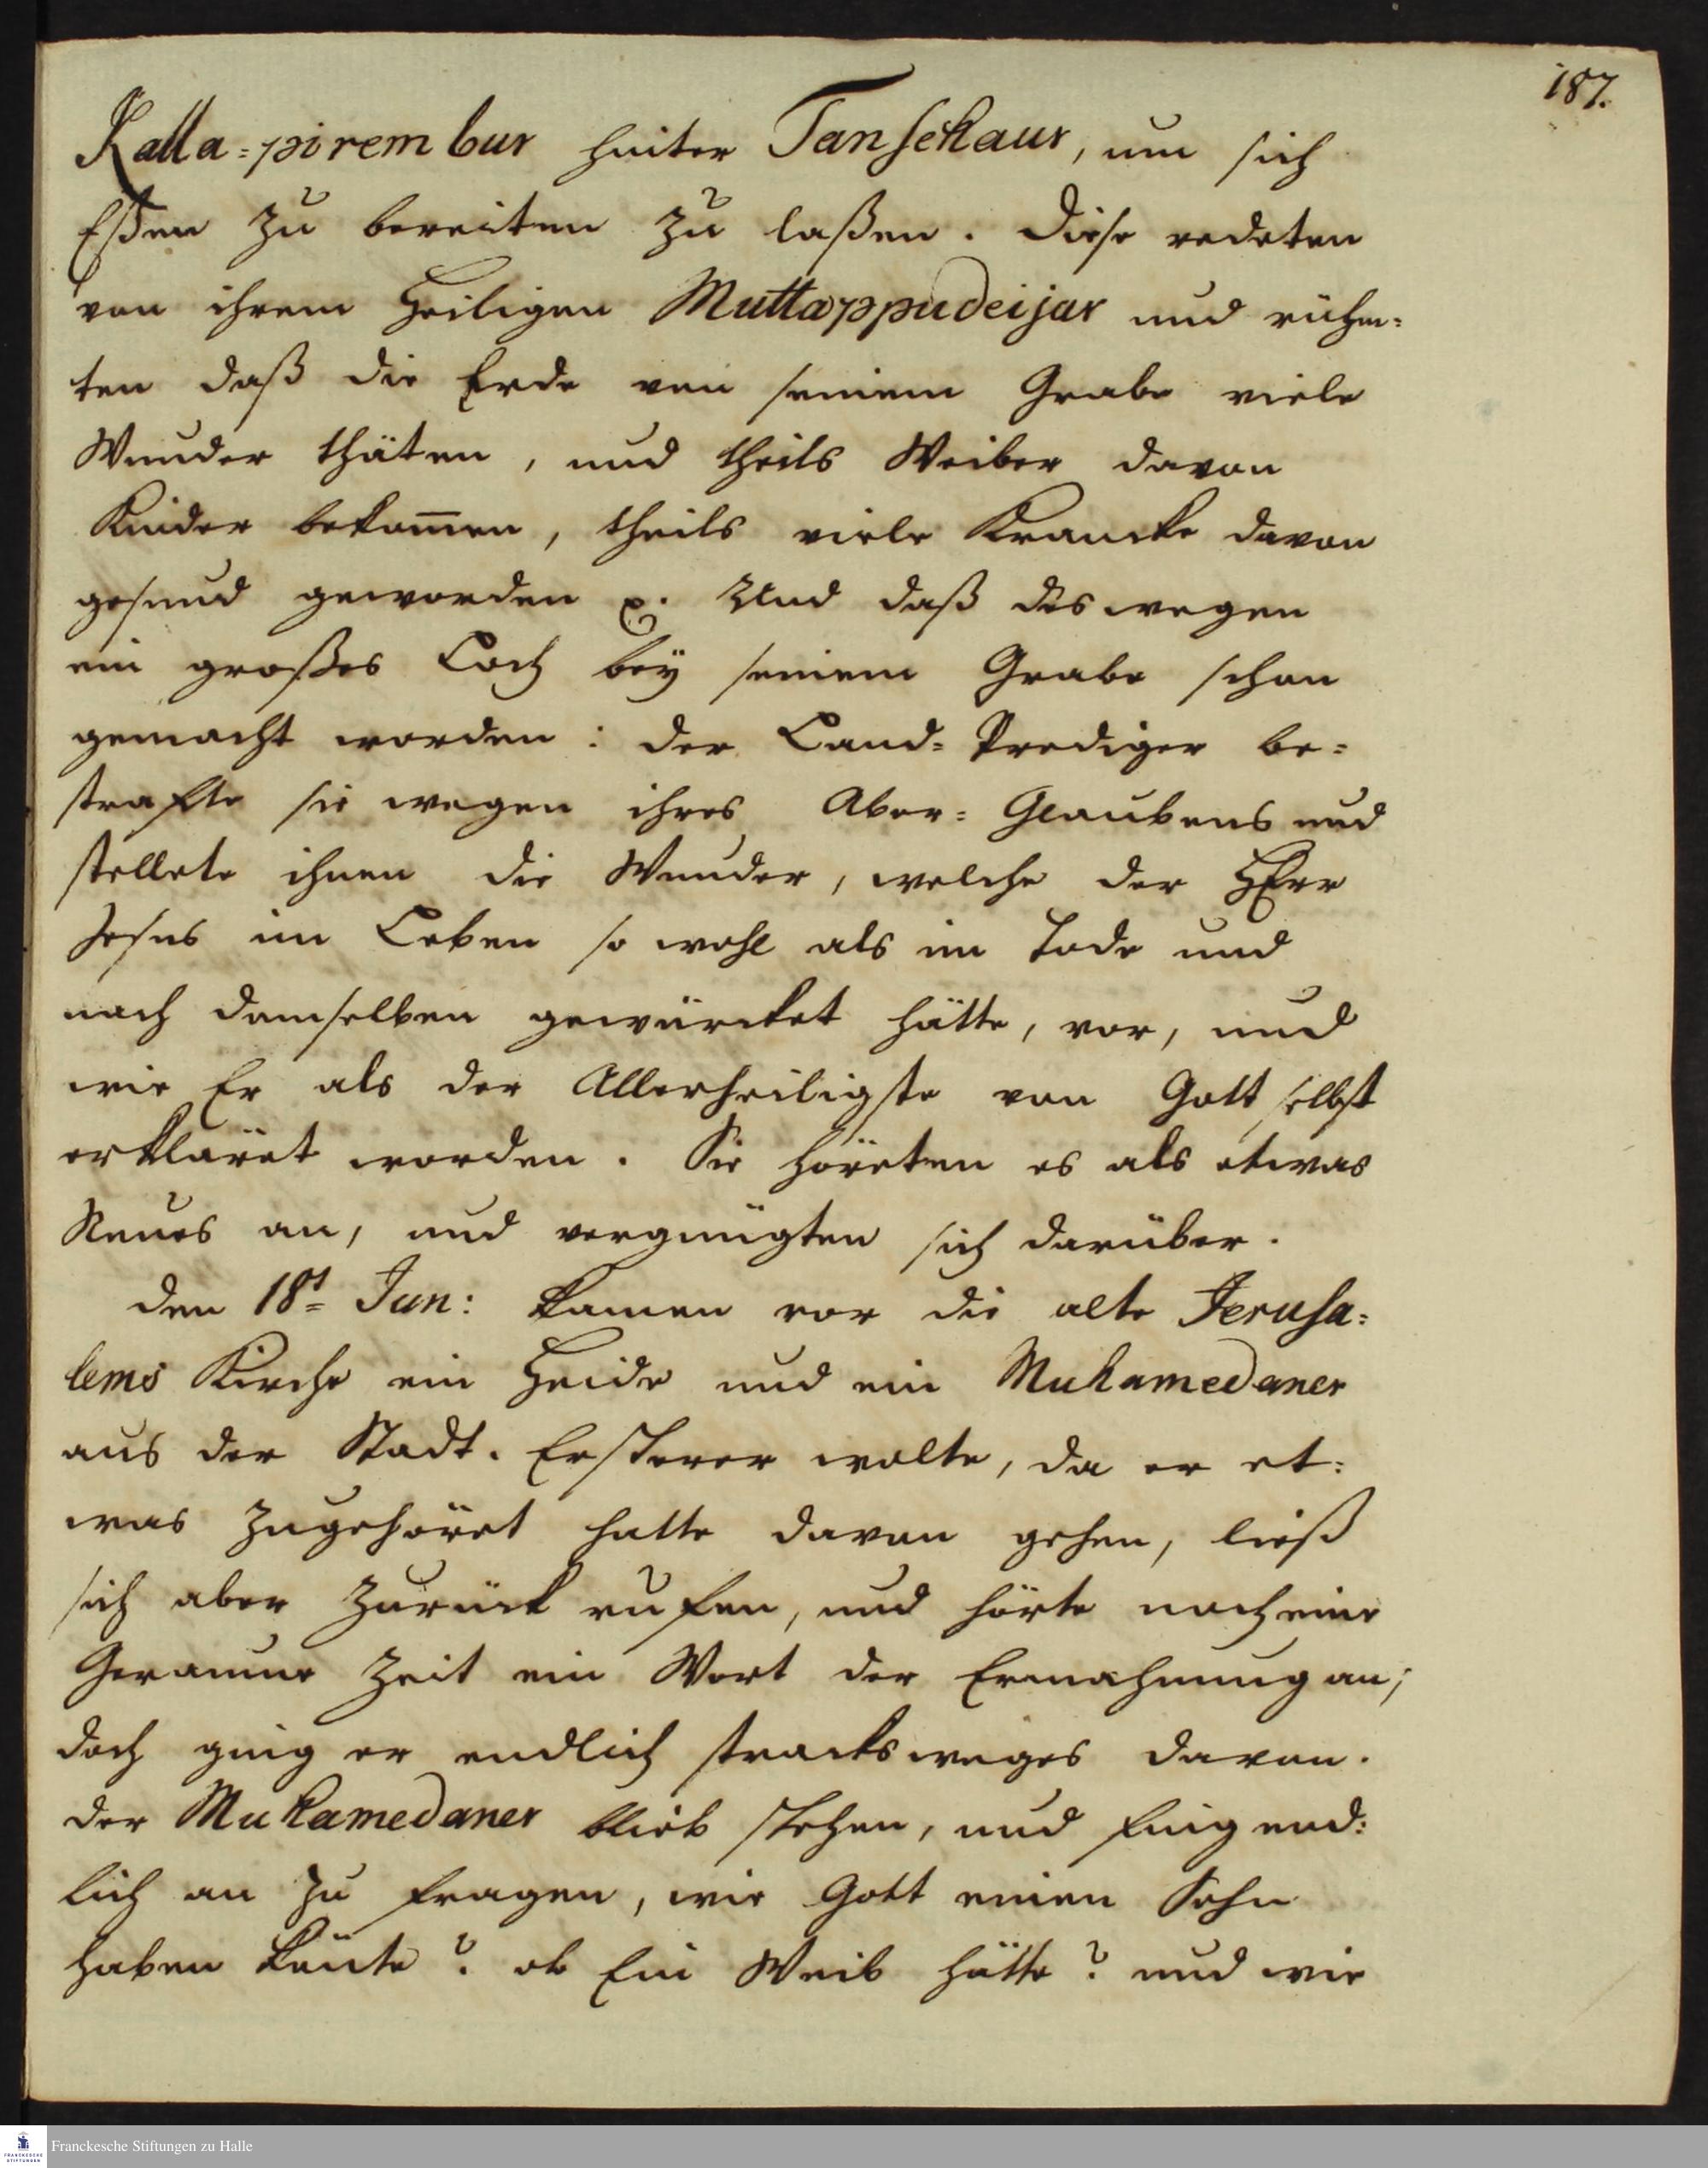 187.
Kalla=pirembur hinter Tanschaur, um sich
Eßen zu bereiten zu laßen. Diese redeten
von ihrem Heiligen Muttappudeijar und rühm=
ten daß die Erde von seinem Grabe viele
Wunder thäten, und theils Weiber davon
Kinder bekom̅en, theils viele Krancke davon
gesund geworden p. Und daß deswegen
ein großes Loch bey seinem Grabe schon
gemacht worden: der Land=Prediger be=
strafte sie wegen ihres Aber=Glaubens und
stellete ihnen die Wunder, welche der HErr
Jesus im Leben so wohl als im Tode und
nach demselben gewürcket hätte, vor, und
wie Er als der Allerheiligste von Gott selbst
erkläret worden. Sie höreten es als etwas
Neues an, und vergnügten sich darüber.
den 18t= Jun: kamen vor die alte Jerusa=
lems Kirche ein Heide und ein Muhamedaner
aus der Stadt. Ersterer wolte, da er et=
was zugehöret hatte davon gehen, ließ
sich aber zurück rufen, und hörte noch eine
Geraume Zeit ein Wort der Ermahnung an;
doch ging er endlich stracksweges davon.
der Muhamedaner blieb stehen, und fing end=
lich an zu fragen, wie Gott einen Sohn
haben könte? ob Ein Weib hätte? und wie
Franckesche Stiftungen zu Halle